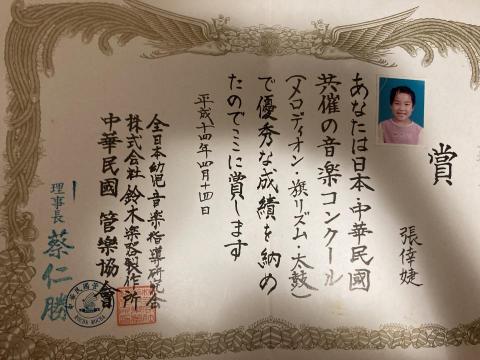 賞
張倖婕
あなたは日本・中華民國
共催の音楽コンクール
(メロディオン・旗リズム・太鼓)
で優秀な成績を納め
たのでここに賞します
平成十四年四月十四日
全日本幼児音楽指導研究会
株式会社 鈴木楽器製作所
中華民國 管樂協會
理事長 蔡仁勝